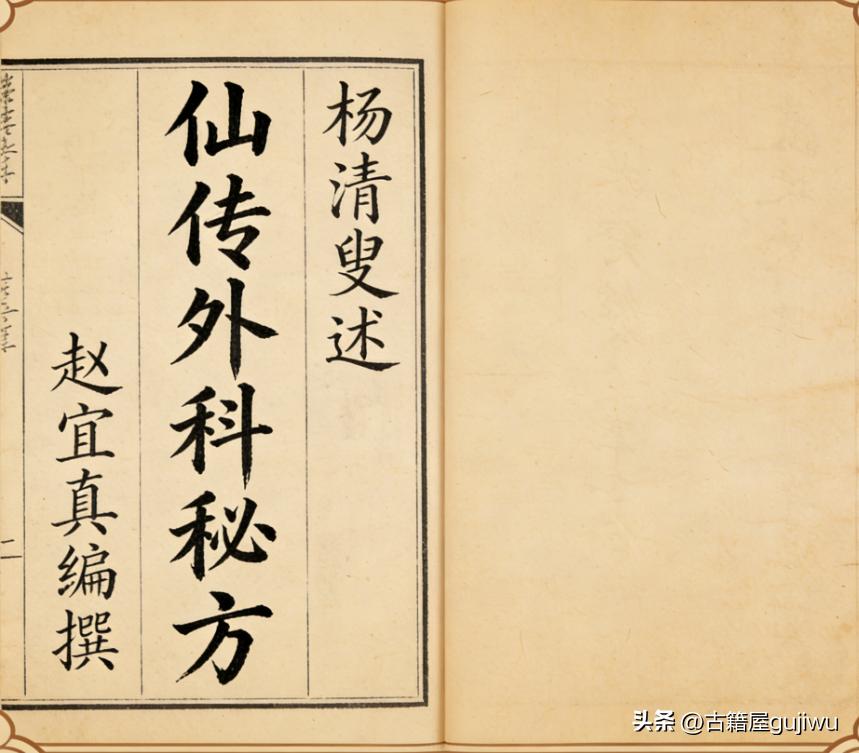 杨清叟述
仙传外科秘方
赵宜真编撰
二
头条 @古籍屋gujiwu